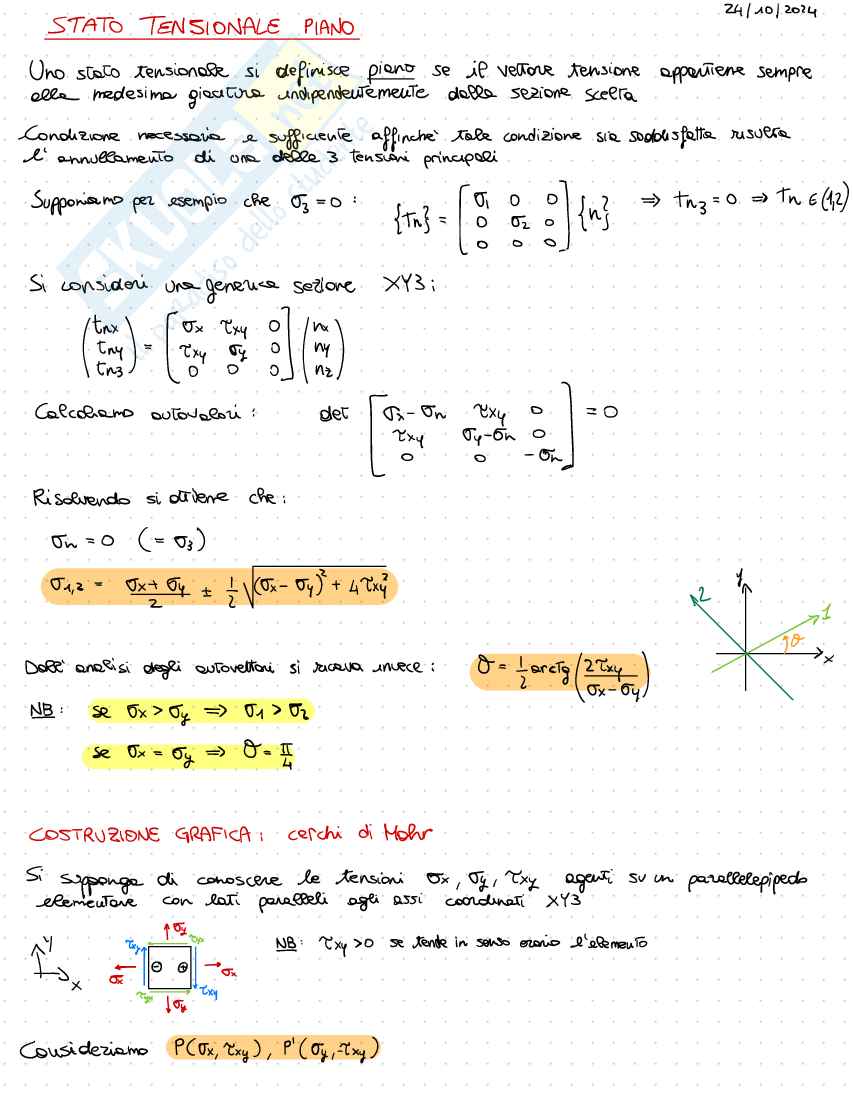 24/10/2024
STATO TENSIONALE PIANO
Uno stato tensionale si definisce piano se il vettore tensione appartiene sempre
alla medesima giacitura indipendentemente dalla sezione scelta
Condizione necessaria e sufficiente affinche' tale condizione sia soddisfatta risulta
l'annullamento di una delle 3 tensioni principali
Supponiamo per esempio che σ3 = 0 : {tn} = [σ1 0 0; 0 σ2 0; 0 0 0] {n} ⇒ tn3 = 0 ⇒ tn ∈ (1,2)
Si consideri una generica sezione XY3:
(tnx; tny; tn3) = [σx τxy 0; τxy σy 0; 0 0 0] (nx; ny; nz)
Calcoliamo autovalori: det [σx-σn τxy 0; τxy σy-σn 0; 0 0 -σn] = 0
Risolvendo si ottiene che:
σn = 0 (= σ3)
σ1,2 = (σx + σy)/2 ± 1/2 √((σx - σy)² + 4τxy²)
y
2
1
θ
x
Dall'analisi degli autovettori si ricava invece: θ = 1/2 arctg (2τxy/(σx - σy))
NB: se σx > σy ⇒ σ1 > σ2
se σx = σy ⇒ θ = π/4
COSTRUZIONE GRAFICA: cerchi di Mohr
Si supponga di conoscere le tensioni σx, σy, τxy agenti su un parallelepipedo
elementare con lati paralleli agli assi coordinati XY3
NB: τxy > 0 se tende in senso orario l'elemento
Y
X
σy
τxy
⊖ ⊕
σx
σx
τyx
τxy
σy
Consideriamo P(σx, τxy), P'(σy, -τxy)
SKUOLA.net
il paradiso dello studente